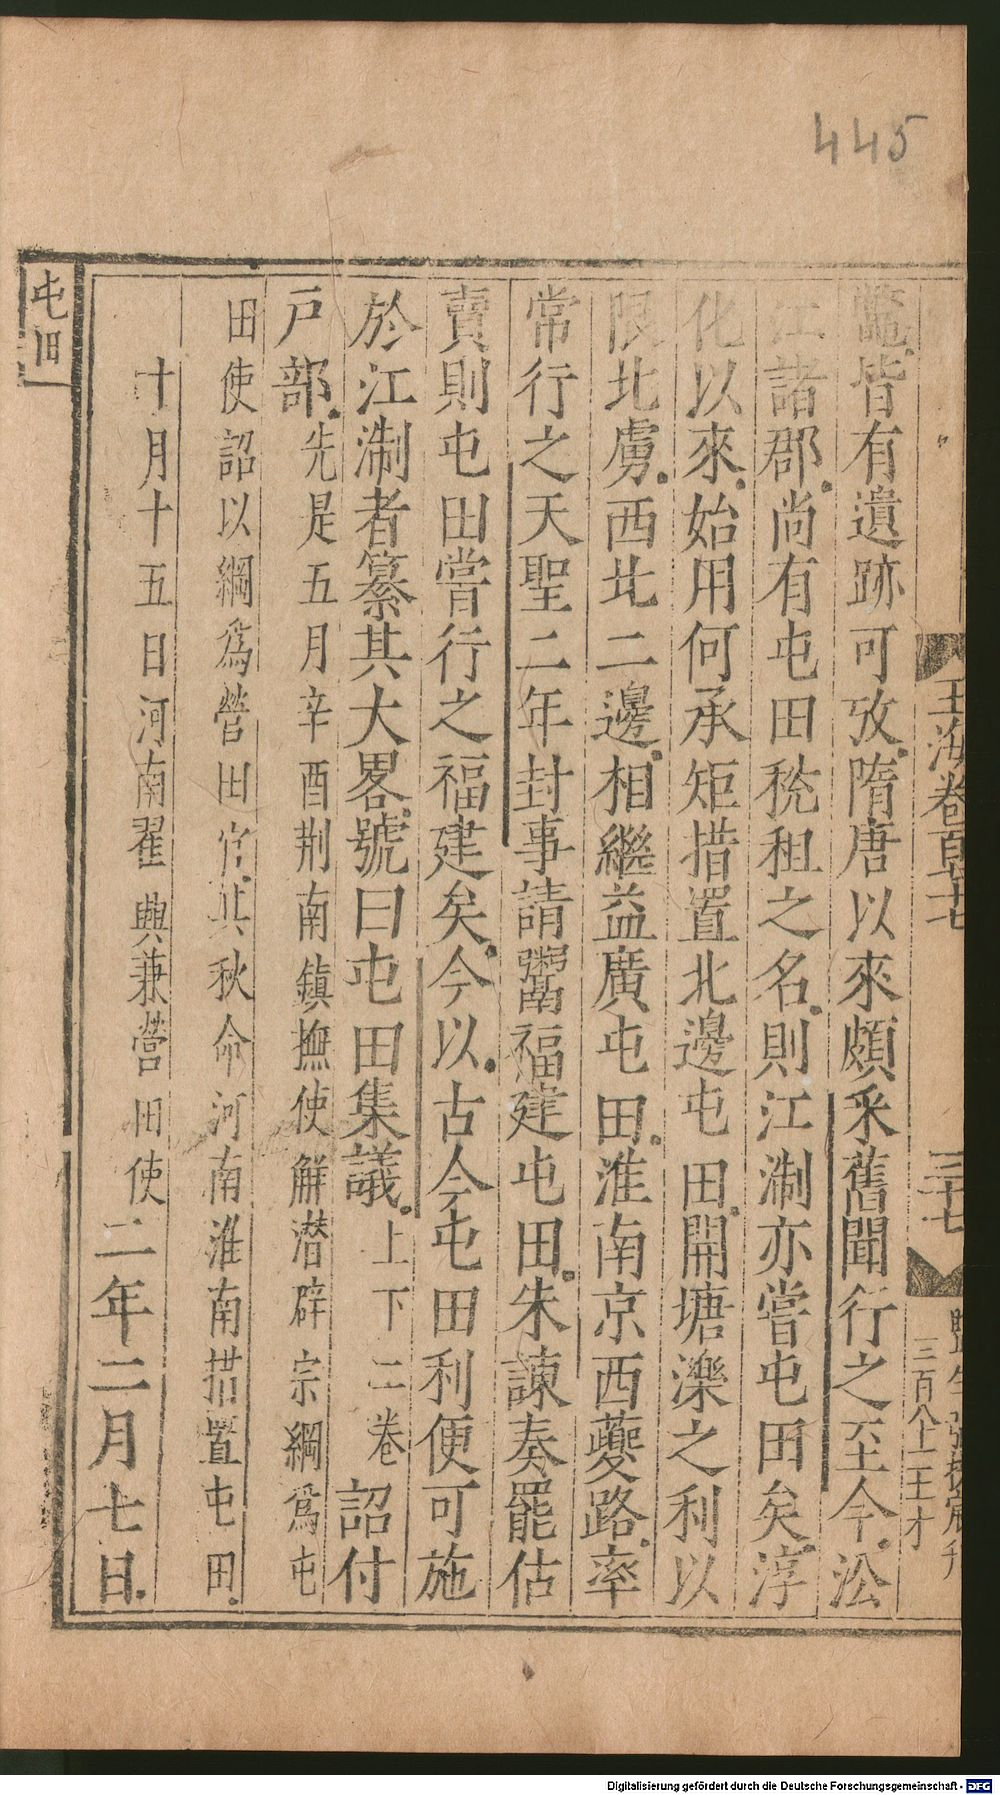 445
玉海卷百七十七
三十七
監生張
三百八十二 王才
皆有遺跡可攷隋唐以來頗釆舊聞行之至今㳂
江諸郡尚有屯田稅租之名則江淛亦嘗屯田矣淳
化以來始用何承矩措置北邊屯田開塘濼之利以
限北虜西北二邊相繼益廣屯田淮南京西夔路率
常行之天聖二年封事請鬻福建屯田朱諫奏罷估
賣則屯田嘗行之福建矣今以古今屯田利便可施
於江淛者纂其大畧號曰屯田集議上下二卷詔付
戶部先是五月辛酉荆南鎮撫使解潛辟宗綱爲屯
田使詔以綱爲營田官其秋命河南淮南措置屯田
十月十五日河南翟興兼營田使二年二月七日
屯田
Digitalisierung gefördert durch die Deutsche Forschungsgemeinschaft - DFG